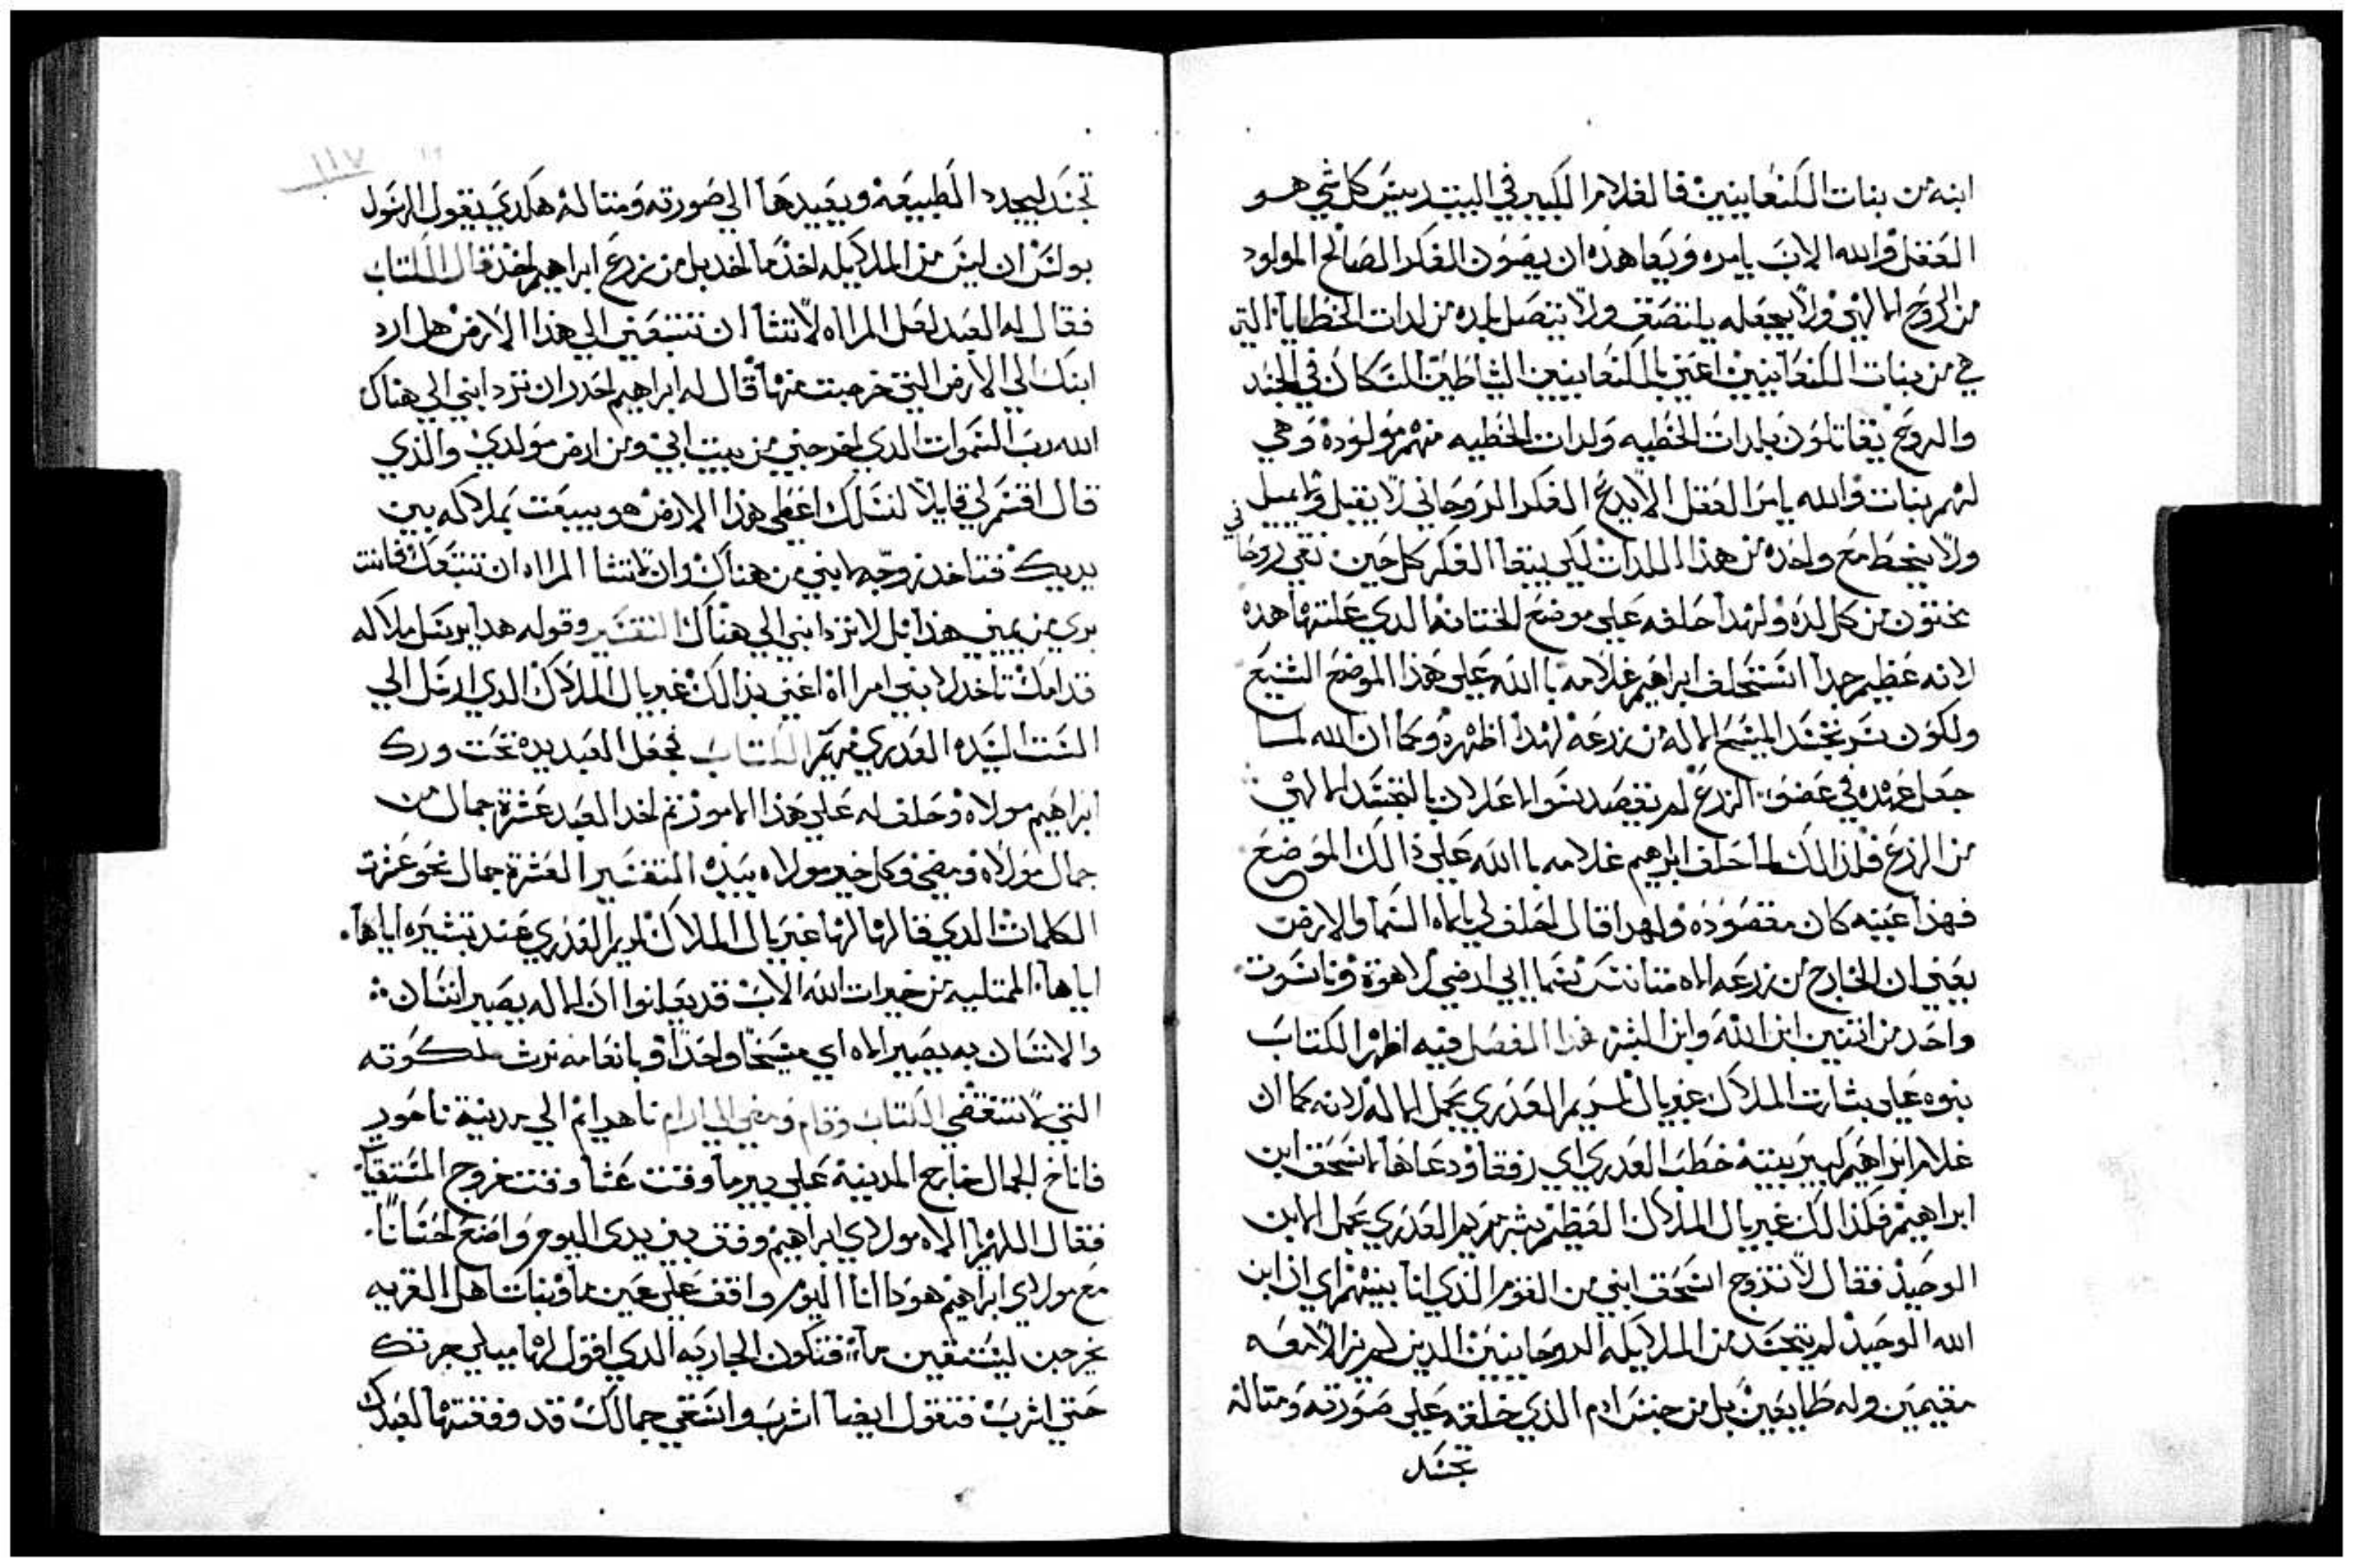 ابنه من بنات الكنعانيين فالغلام الكبير في البيت رييس كل شي هو
العقل والله الاب يامره ويعاهده ان يصون الفكر الصالح المولود
من الروح الالهي ولا يجعله يلتصق ولا يتصل بلده من لدات الخطايا التي
هي من بنات الكنعانيين اعني بالكنعانيين الشياطين السكان في الجسد
والروح يقاتلون بلدات الخطيه ولدات الخطيه منهم مولوده وهي
لهم بنات والله يامر العقل الا يدع الفكر الروحاني لا يقبل ولا يميل
ولا ينحط مع واحده من هذا اللدات لكي يبقا الفكر كل حين نقي روحاني
مختون من كل لده ولهدا حلفه علي موضع الختانه الدي علتها هده
لانه عظيم جدا استحلف ابراهيم غلامه باالله علي هذا الموضع الشنيع
ولكون سر تجسد المسيح الاله من زرعه لهدا اظهره وكما ان الله لما
جعل عهده في عضو الزرع لم يقصد سوا الاعلان بالتجسد الالهي
من الزرع فلذالك لما احلف ابراهيم غلامه باالله علي ذالك الموضع
فهذا عينه كان مقصوده ولهدا قال احلف لي بالاه السما والارض
يعني ان الخارج من زرعه الاه متانس سماايي ارضي لاهوته وناسوت
واحد من اتنين ابن الله وابن البشر هدا الفصل فيه اظهر الكتاب
بنوه علي بشارت الملاك غبريال لمريم العدري بحمل الاله لانه كما ان
غلام ابراهيم كبير بيته خطب العدري اي رفقا ودعاها لاسحق ابن
ابراهيم فكذالك غبريال الملاك العظيم بشر مريم العدري بحمل الابن
الوحيد فقال لا تزوج اسحق ابني من القوم الذي انا بينهم اي ان ابن
الله الوحيد لم يتجسد من الملايكه الروحانيين الدين لم يزالا معه
مقيمين وله طايعين بل من جنس ادم الذي خلقه علي صورته ومتاله
تجسد
١١٧
تجسد ليجدد الطبيعه ويعيدها الي صورته ومتاله هكدي يقول الرسول
بولس ان ليس من الملايكه اخذ ما اخد بل من زرع ابراهيم اخد قال الكتاب
فقال له العبد لعل المراه لا تشا ان تتبعني الي هذا الارض هل ارد
ابنك الي الارض التي خرجت منها قال له ابراهيم احدر ان ترد ابني الي هناك
الله رب السموات الدي اخرجني من بيت ابي ومن ارض مولدي والذي
قال اقسم لي قايلا لنسلك اعطي هذا الارض هو يبعت بملاكه بين
يديك فتاخد زوجه لابني من هناك وان لا تشا المراه ان تتبعك فانت
بري من يمين هذا بل لا ترد ابني الي هناك التفسير وقوله هدا يرسل ملاكه
قدامك تاخد لابني امراه اعني بذالك غبريال الملاك الدي ارسل الي
الست السيده العدري مريم الكتاب فجعل العبد يده تحت ورك
ابراهيم مولاه وحلف له علي هذا الامور تم اخد العبد عشرة جمال من
جمال مولاه ومضي وكل خير مولاه بيده التفسير العشرة جمال نحو عشرت
الكلمات الدي قالها لها غبريال الملاك لمريم العدري عند تبشيره اياها
اياها الممتليه من خيرات الله الاب قد يعلنوا ان الاله يصير انسان
والانسان به يصير الاه اي مسيحا واحدا وبانعامه نرث ملكوته
التي لا تنقضي الكتاب وقام ومضي الي ارام ناهرايم الي مدينة ناحور
فاناخ الجمال خارج المدينه علي بير ما وقت عشا وقت خروج المستقيات
فقال اللهم الاه مولاي ابراهيم وفق بين يدي اليوم واصنع احسانا
مع مولاي ابراهيم هودا انا اليوم واقف علي عين ما وبنات اهل القريه
يخرجن ليستقين ما فتكون الجاريه الدي اقول لها ميلي جرتك
حتي اشرب فتقول ايضا اشرب واسقي جمالك قد وفقتها لعبدك